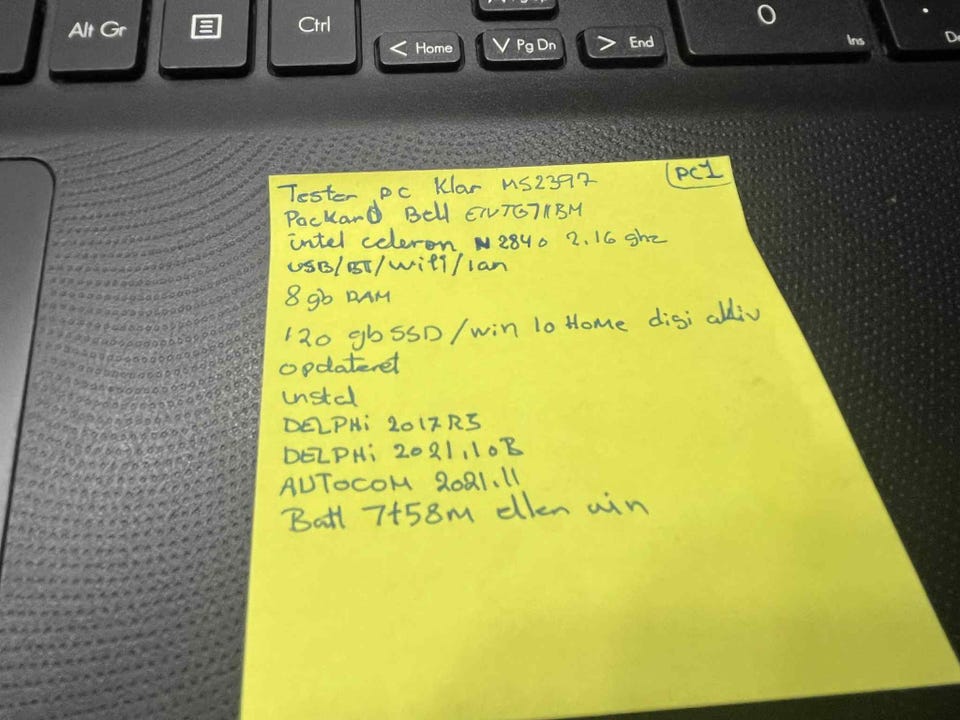 Alt Gr
Ctrl
< Home
Pg Dn
> End
0
Ins
PC1
Tester pc Klar MS2397
Packard Bell ENTG71BM
intel celeron N2840 2.16 ghz
USB/BT/wifi/lan
8 gb RAM
120 gb SSD/win 10 Home digi aktiv
opdateret
instal
DELPHi 2017 R3
DELPHi 2021.10B
AUTOCOM 2021.11
Batt 7t58m ellen win